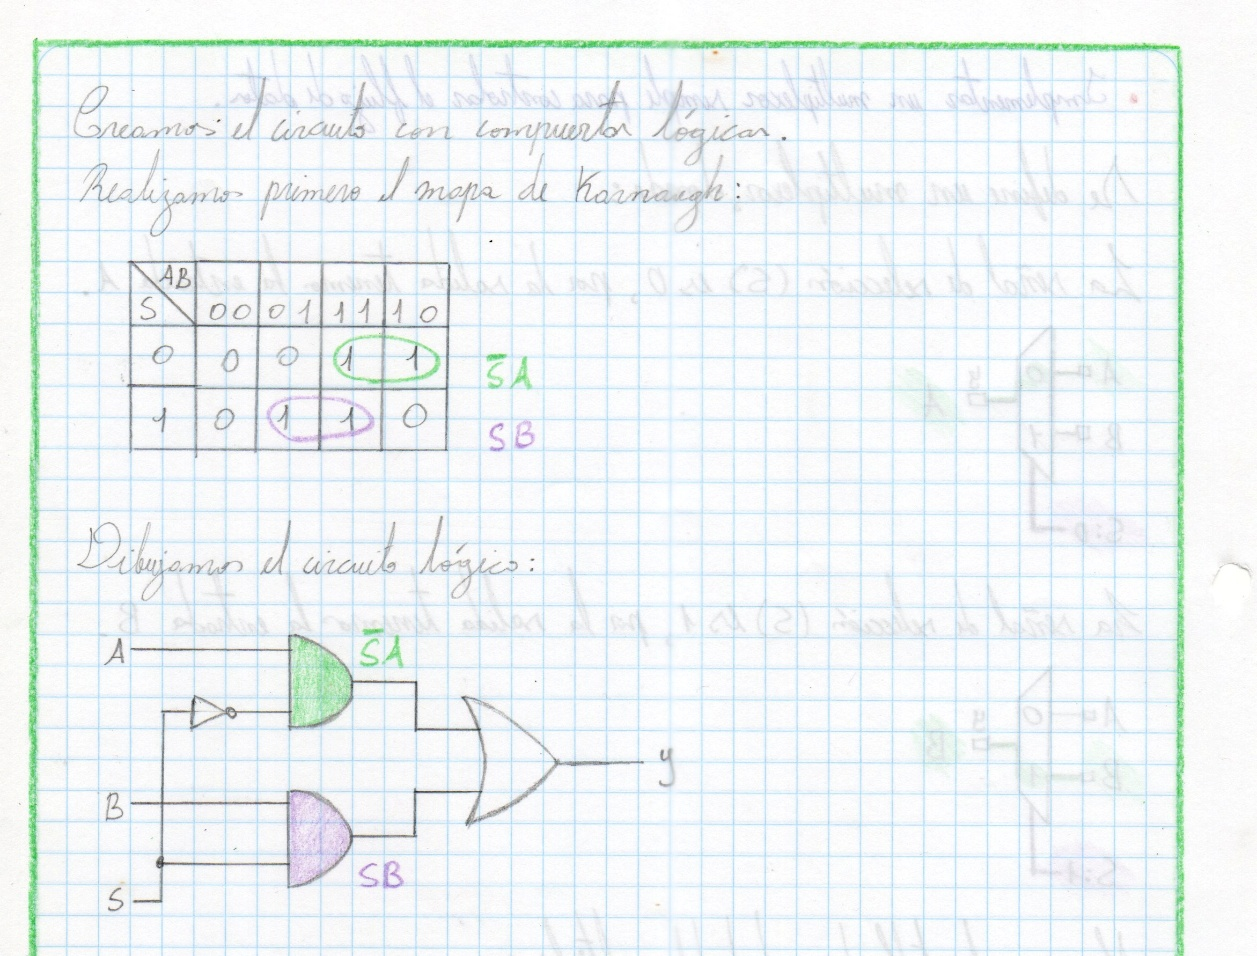 Creamos el circuito con compuertas lógicas.
Realizamos primero el mapa de Karnaugh:
AB
S 00 01 11 10
0 0 0 1 1 S̅A
1 0 1 1 0 SB
Dibujamos el circuito lógico:
A S̅A
y
B
SB
S